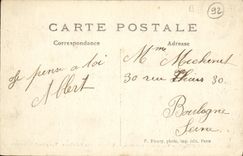 92
CARTE POSTALE
Correspondance
Adresse
Je pense a toi
Albert
Mme Michenet
30 rue Thiers 30.
Boulogne
Seine
F. Fleury, phot. imp. édit. Paris